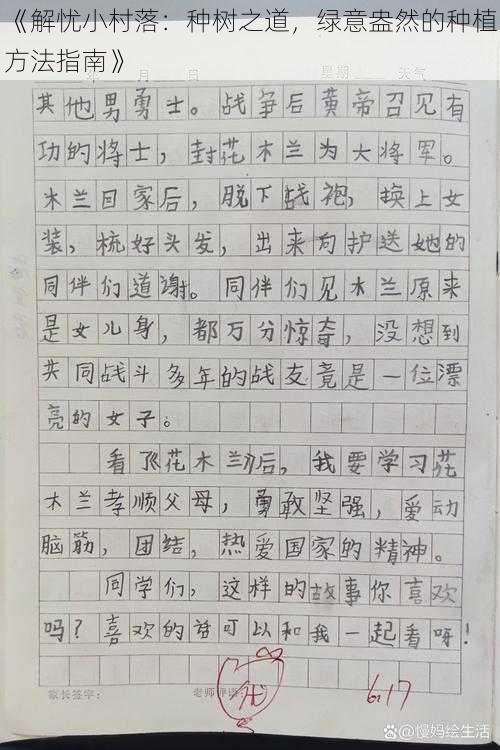 《解忧小村落：种树之道，绿意盎然的种植
方法指南》
月 日 星期 天气
其他男勇士。战争后黄帝召见有
功的将士，封花木兰为大将军。
木兰回家后，脱下战袍，换上女
装，梳好头发，出来向护送她的
同伴们道谢。同伴们见木兰原来
是女儿身，都万分惊奇，没想到
共同战斗多年的战友竟是一位漂
亮的女子。
看了《花木兰》后，我要学习花
木兰孝顺父母，勇敢坚强，爱动
脑筋，团结，热爱国家的精神。
同学们，这样的故事你喜欢
吗？喜欢的话可以和我一起看呀！
家长签字： 老师评语：
优 6.17
慢妈绘生活